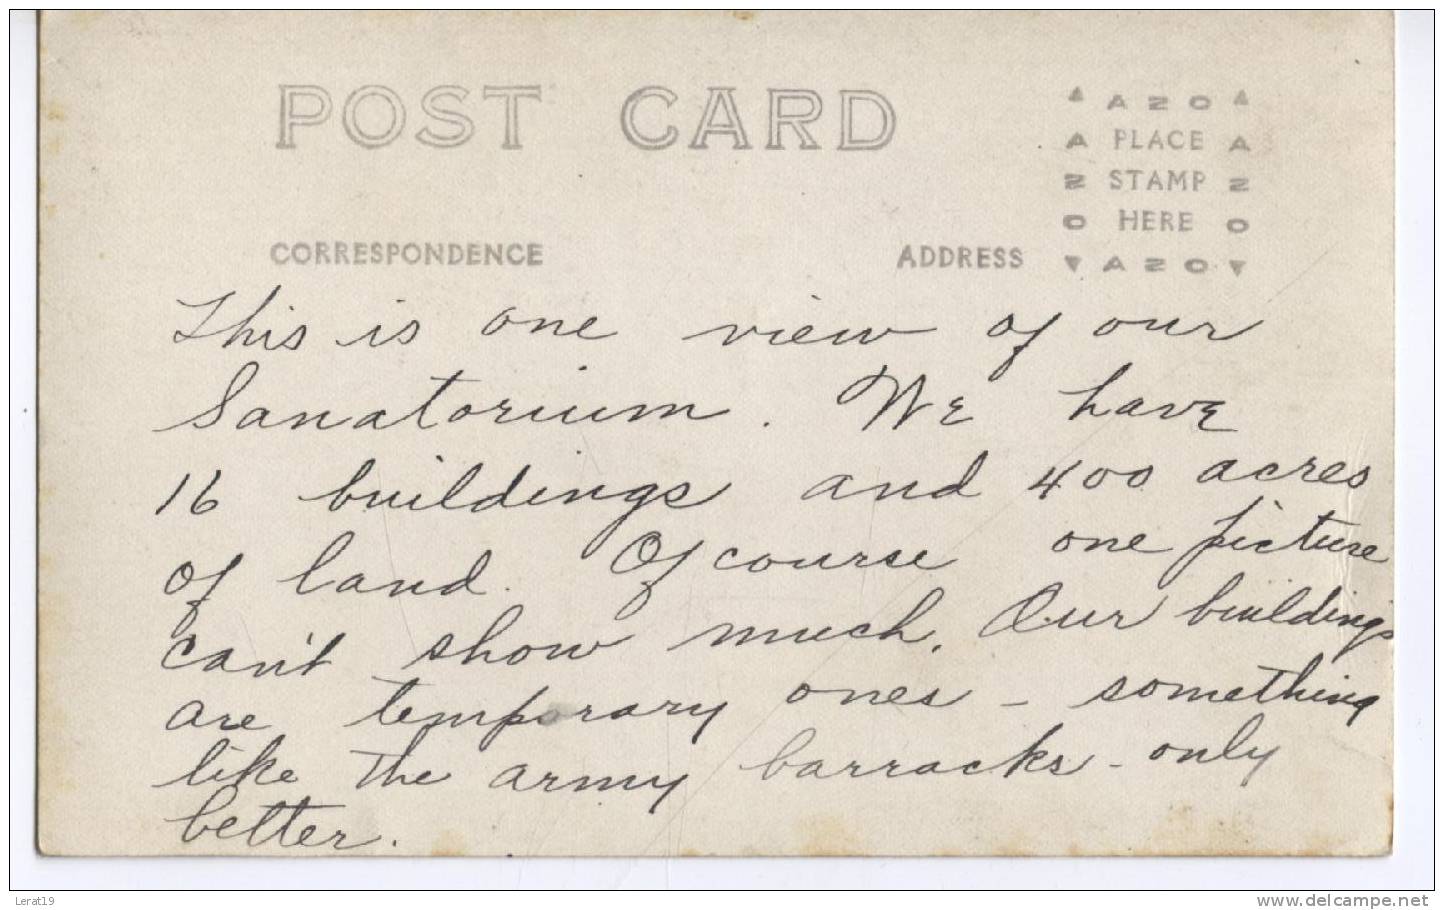 POST CARD
▲ AZO ▲
A PLACE A
Z STAMP Z
O HERE O
▼ AZO ▼
CORRESPONDENCE ADDRESS
This is one view of our
Sanatorium. We have
16 buildings and 400 acres
of land. Of course one picture
can't show much. Our buildings
are temporary ones - something
like the army barracks - only
better.
Lerat19
delcampe.net